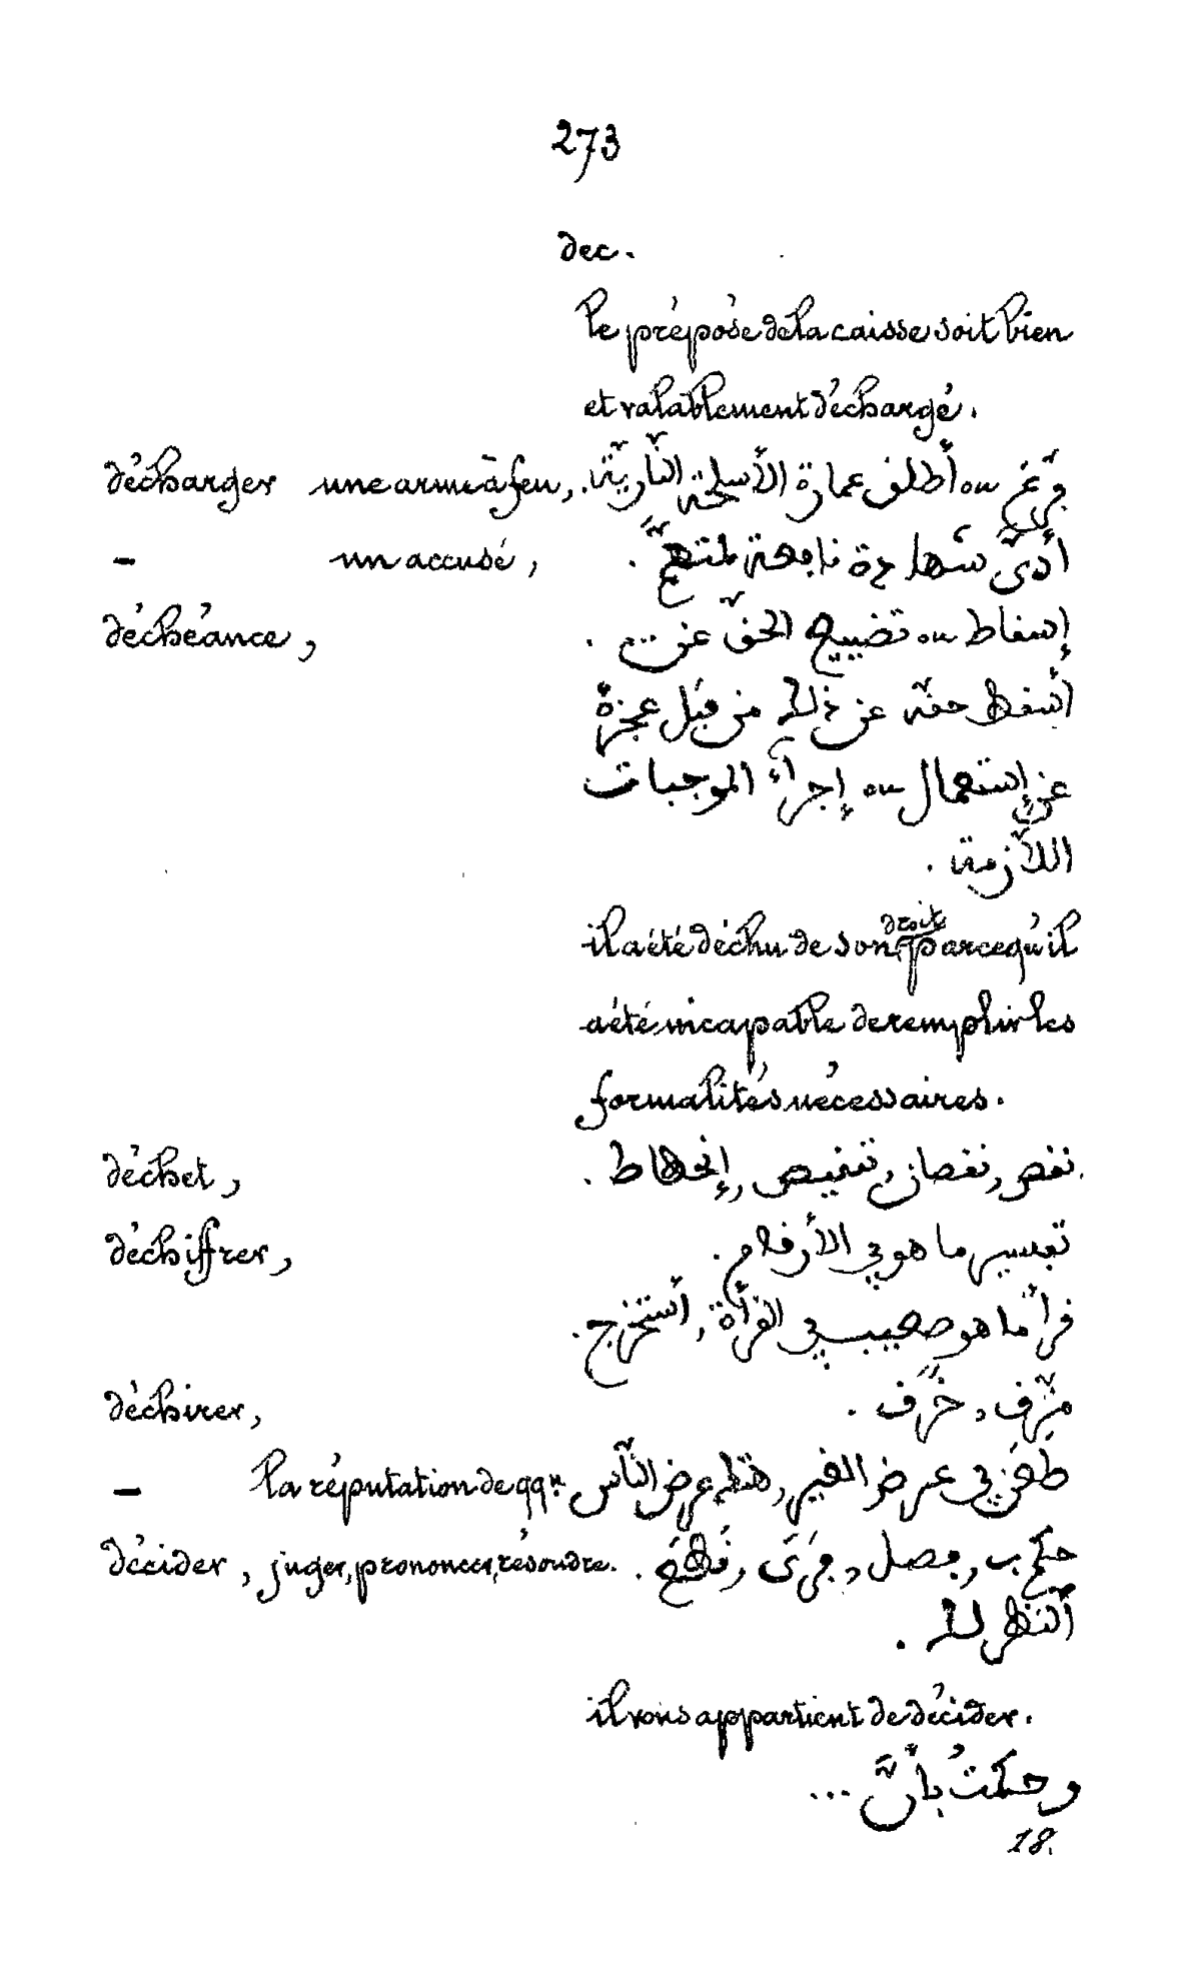 273
dec.
le préposé de la caisse soit bien
et valablement déchargé.
décharger une arme à feu, فرّغ ou أطلق عمارة الأسلحة النّاريّة.
– un accusé, أدّى شهادة نافعة لمتهمٍ.
déchéance, إسقاط ou تضييع الحقّ عن ...
أسقط حقّه عن ذلك من قبل عجزه
عن إستعمال ou إجراء الموجبات
اللآزمة.
il a été déchu de son droit parcequ'il
a été incapable de remplir les
formalités nécessaires.
déchet, نقص, نقصان, تنقيص, إنحطاط.
déchiffrer, تفسير ما هو في الأرقام.
قرأ ما هو صعيب في القرأة, أستخرج.
déchirer, مزّق, خرّق.
– la réputation de qqn طعن في عرض الغير, هتك عرض النّاس
décider, juger, prononcer, résoudre. حكم ب, فصل,
أنظر لك.
il vous appartient de décider.
وحكمتُ بأنَّ ...
18.